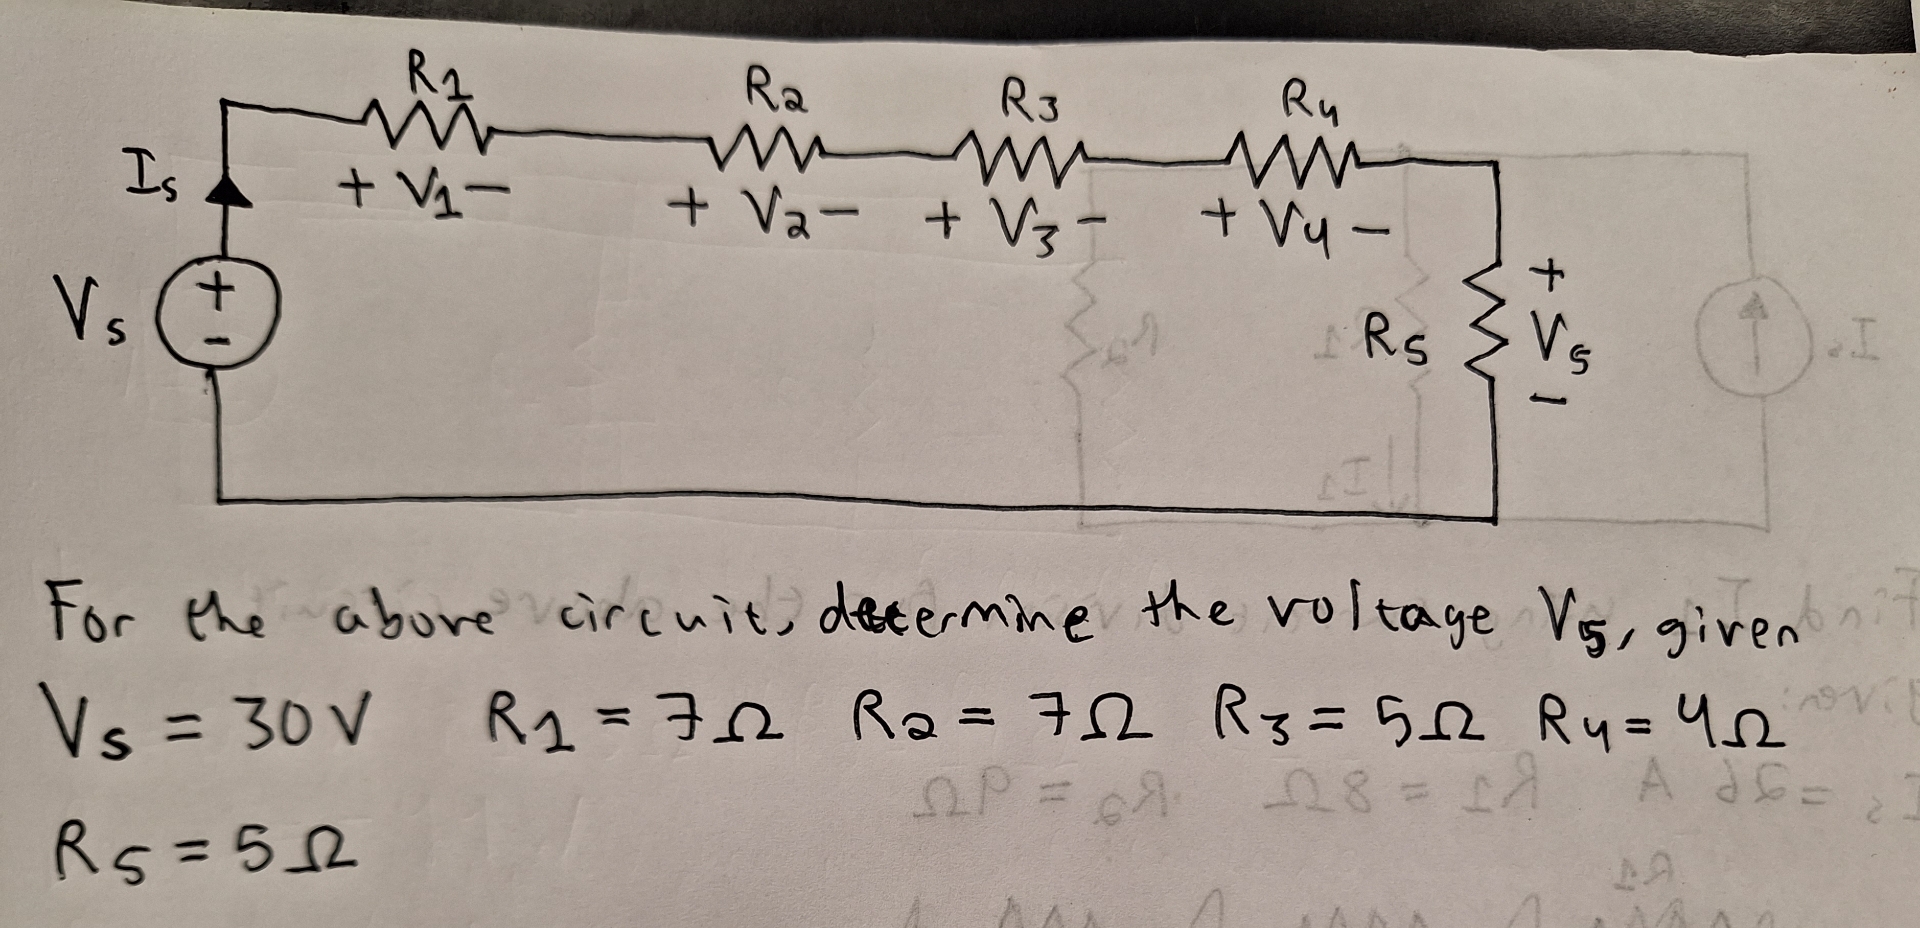 R1 R2 R3 R4
Is + V1 - + V2 - + V3 - + V4 -
Vs + - R5 + V5 -
For the above circuit, determine the voltage V5, given
Vs = 30V R1 = 7Ω R2 = 7Ω R3 = 5Ω R4 = 4Ω
R5 = 5Ω